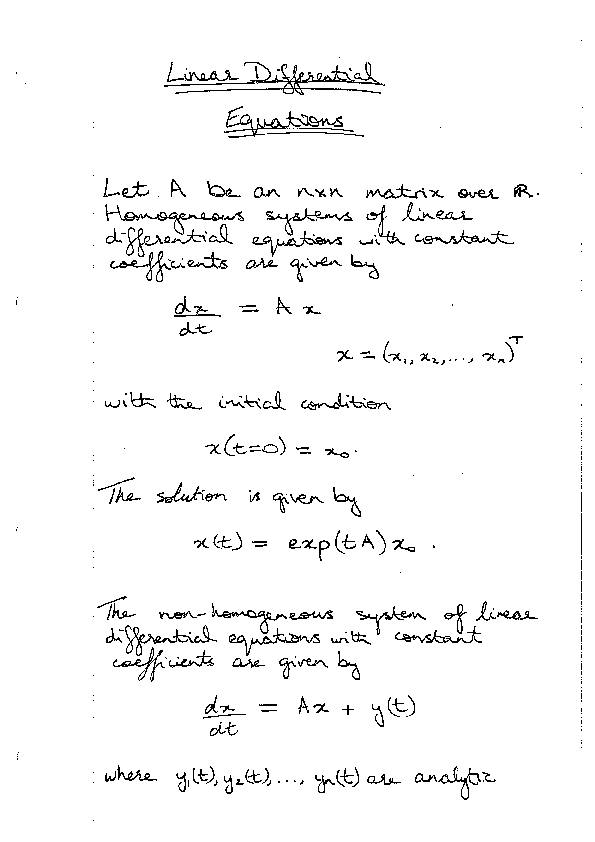 Linear Differential
Equations
Let A be an n×n matrix over ℝ.
Homogeneous systems of linear
differential equations with constant
coefficients are given by
dx/dt = A x
x = (x₁, x₂, ..., xₙ)ᵀ
with the initial condition
x(t=0) = x₀.
The solution is given by
x(t) = exp(tA)x₀.
The non-homogeneous system of linear
differential equations with constant
coefficients are given by
dx/dt = Ax + y(t)
where y₁(t), y₂(t), ..., yₙ(t) are analytic